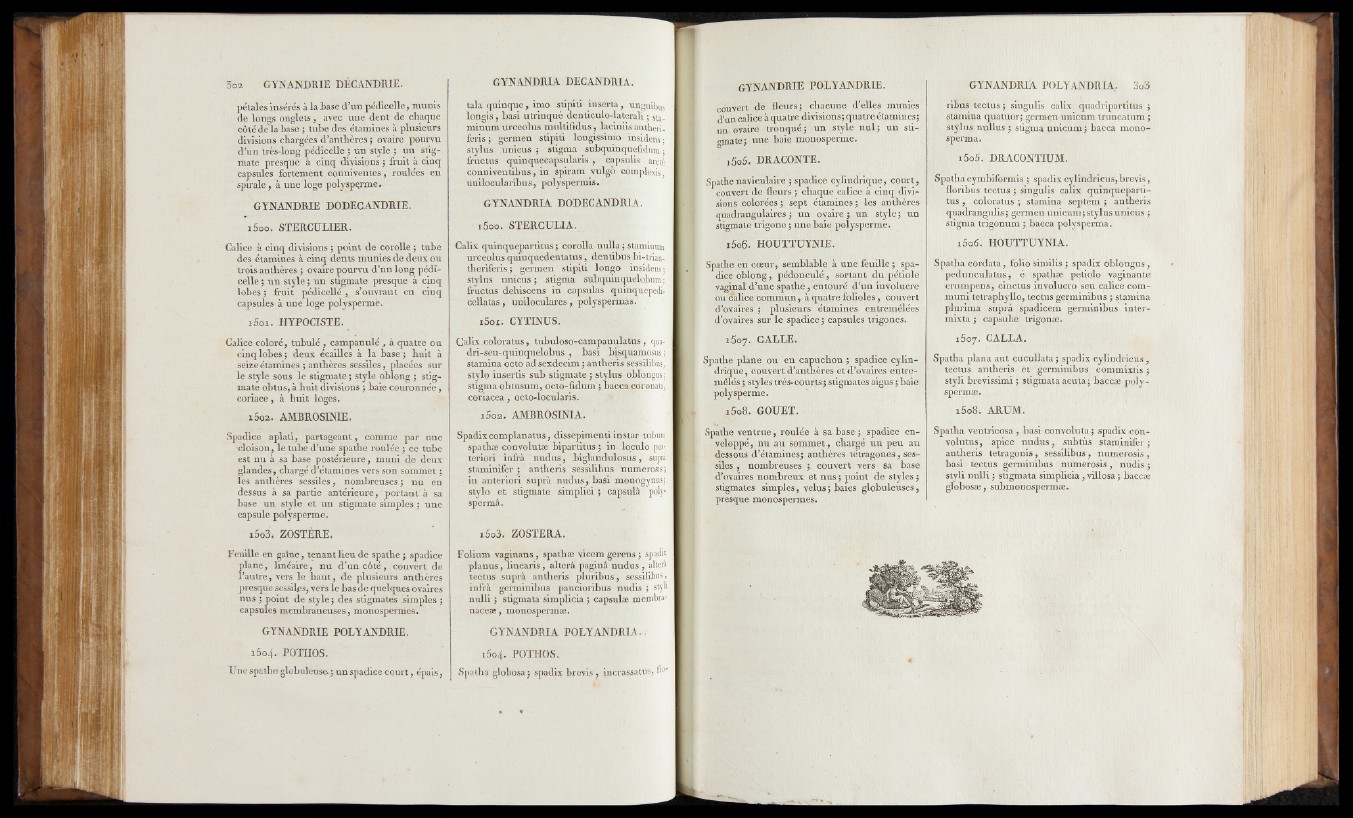 302 GYNANDRIE DÉCANDRIE.
pétales insérés à la base d'un pédicelle, munis
de longs onglets, avec une dent de chaque
côté de la base ; tube des étamines à plusieurs
divisions chargées d'anthères ; ovaire pourvu
d'un très-long pédicelle ; un style ; un stig-
mate presque à cinq divisions ; fruit à cinq
capsules fortement conniventes, roulées en
spirale, à une loge polysperme.
GYNANDRIE DODÉCANDRIE.
1500. STERCULIER.
Calice à cinq divisions ; point de corolle ; tube
des étamines à cinq dents munies de deux ou
trois anthères ; ovaire pourvu d'un long pédi-
celle ; un style ; un stigmate presque à cinq
lobes ; fruit pédicellé, s'ouvrant en cinq
capsules à une loge polysperme.
1501. HYPOCISTE.
Calice coloré, tubulé, campanulé, à quatre ou
cinq lobes ; deux écailles à la base ; huit à
seize étamines ; anthères sessiles, placées sur
le style sous le stigmate ; style oblong ; stig-
mate obtus, à huit divisions ; baie couronnée,
coriace, à huit loges.
1502. AMBROSINIE.
Spadice aplati, partageant, comme par une
cloison, le tube d'une spathe roulée ; ce tube
est nu à sa base postérieure, muni de deux
glandes, chargé d'étamines vers son sommet ;
les anthères sessiles, nombreuses ; nu en
dessus à sa partie antérieure, portant à sa
base un style et un stigmate simples ; une
capsule polysperme.
1503. ZOSTÈRE.
Feuille en gaîne, tenant lieu de spathe ; spadice
plane, linéaire, nu d'un côté, couvert de
l'autre, vers le haut, de plusieurs anthères
presque sessiles, vers le bas de quelques ovaires
nus ; point de style ; des stigmates simples ;
capsules membraneuses, monospermes.
GYNANDRIE POLYANDRIE.
1504. POTHOS.
Une spathe globuleuse ; un spadice court, épais,
GYNANDRIA DECANDRIA.
tala quinque, imo stipiti inserta, unguibus
longis, basi utrinque denticulo-laterali ; sta-
minum urceolus multifidus, laciniis antheri-
feris ; germen stipiti longissimo insidens ;
stylus unicus ; stigma subquinquefidum ;
fructus quinquecapsularis, capsulis arctè
conniventibus, in spiram vulgò complexis,
unilocularibus, polyspermis.
GYNANDRIA DODECANDRIA.
1500. STERCULIA.
Calix quinquepartitus ; corolla nulla ; staminum
urceolus quinquedentatus, dentibus bi-trian-
theriferis ; germen stipiti longo insidens ;
stylus unicus ; stigma subquinquelobum ;
fructus dehiscens in capsulas quinquepedi-
cellatas, uniloculares, polyspermas.
1501. CYTINUS.
Calix coloratus, tubuloso-campanulatus, qua-
dri-seu-quinquelobus, basi bisquamosus ;
stamina octo ad sexdecim ; antheris sessilibus,
stylo insertis sub stigmate ; stylus oblongus ;
stigma obtusum, octo-fidum ; bacca coronata,
coriacea, octo-locularis.
1502. AMBROSINIA.
Spadix complanatus, dissepimenti instar tubum
spathæ convolutæ bipartitus ; in loculo pos-
teriori infrà nudus, biglandulosus, suprà
staminifer ; antheris sessilibus numerosis ;
in anteriori suprà nudus, basi monogynus ;
stylo et stigmate simplici ; capsulâ poly-
spermâ.
1503. ZOSTERA.
Folium vaginans, spathæ vicem gerens ; spadix
planus, linearis, alterâ paginâ nudus, alterâ
tectus suprà antheris pluribus, sessilibus,
infrà germinibus paucioribus nudis ; styli
nulli ; stigmata simplicia ; capsulæ membra-
naceæ, monospermæ.
GYNANDRIA POLYANDRIA.
1504. POTHOS.
Spatha globosa ; spadix brevis, incrassatus, flo-
GYNANDRIE POLYANDRIE.
couvert de fleurs ; chacune d'elles munies
d'un calice à quatre divisions ; quatre étamines ;
un ovaire tronqué ; un style nul ; un sti-
gmate ; une baie monosperme.
1505. DRACONTE.
Spathe naviculaire ; spadice cylindrique, court,
couvert de fleurs ; chaque calice à cinq divi-
sions colorées ; sept étamines ; les anthères
quadrangulaires ; un ovaire ; un style ; un
stigmate trigone ; une baie polysperme.
1506. HOUTTUYNIE.
Spathe en cœur, semblable à une feuille ; spa-
dice oblong, pédonculé, sortant du pétiole
vaginal d'une spathe, entouré d'un involucre
ou calice commun, à quatre folioles, couvert
d'ovaires ; plusieurs étamines entremêlées
d'ovaires sur le spadice ; capsules trigones.
1507. CALLE.
Spathe plane ou en capuchon ; spadice cylin-
drique, couvert d'anthères et d'ovaires entre-
mêlés ; styles très-courts ; stigmates aigus ; baie
polysperme.
1508. GOUET.
Spathe ventrue, roulée à sa base ; spadice en-
veloppé, nu au sommet, chargé un peu au
dessous d'étamines ; anthères tétragones, ses-
siles, nombreuses ; couvert vers sa base
d'ovaires nombreux et nus ; point de styles ;
stigmates simples, velus ; baies globuleuses,
presque monospermes.
GYNANDRIA POLYANDRIA. 303
ribus tectus ; singulis calix quadripartitus ;
stamina quatuor ; germen unicum truncatum ;
stylus nullus ; stigma unicum ; bacca mono-
sperma.
1505. DRACONTIUM.
Spatha cymbiformis ; spadix cylindricus, brevis,
floribus tectus ; singulis calix quinqueparti-
tus, coloratus ; stamina septem ; antheris
quadrangulis ; germen unicum ; stylus unicus ;
stigma trigonum ; bacca polysperma.
1506. HOUTTUYNIA.
Spatha cordata, folio similis ; spadix oblongus,
pedunculatus, è spathæ petiolo vaginante
erumpens, cinctus involucro seu calice com-
muni tetraphyllo, tectus germinibus ; stamina
plurima suprà spadicem germinibus inter-
mixta ; capsulæ trigonæ.
1507. CALLA.
Spatha plana aut cucullata ; spadix cylindricus,
tectus antheris et germinibus commixtis ;
styli brevissimi ; stigmata acuta ; baccæ poly-
spermæ.
1508. ARUM.
Spatha ventricosa, basi convoluta ; spadix con-
volutus, apice nudus, subtùs staminifer ;
antheris tetragonis, sessilibus, numerosis,
basi tectus germinibus numerosis, nudis ;
styli nulli ; stigmata simplicia, villosa ; baccæ
globosæ, submonospermæ.